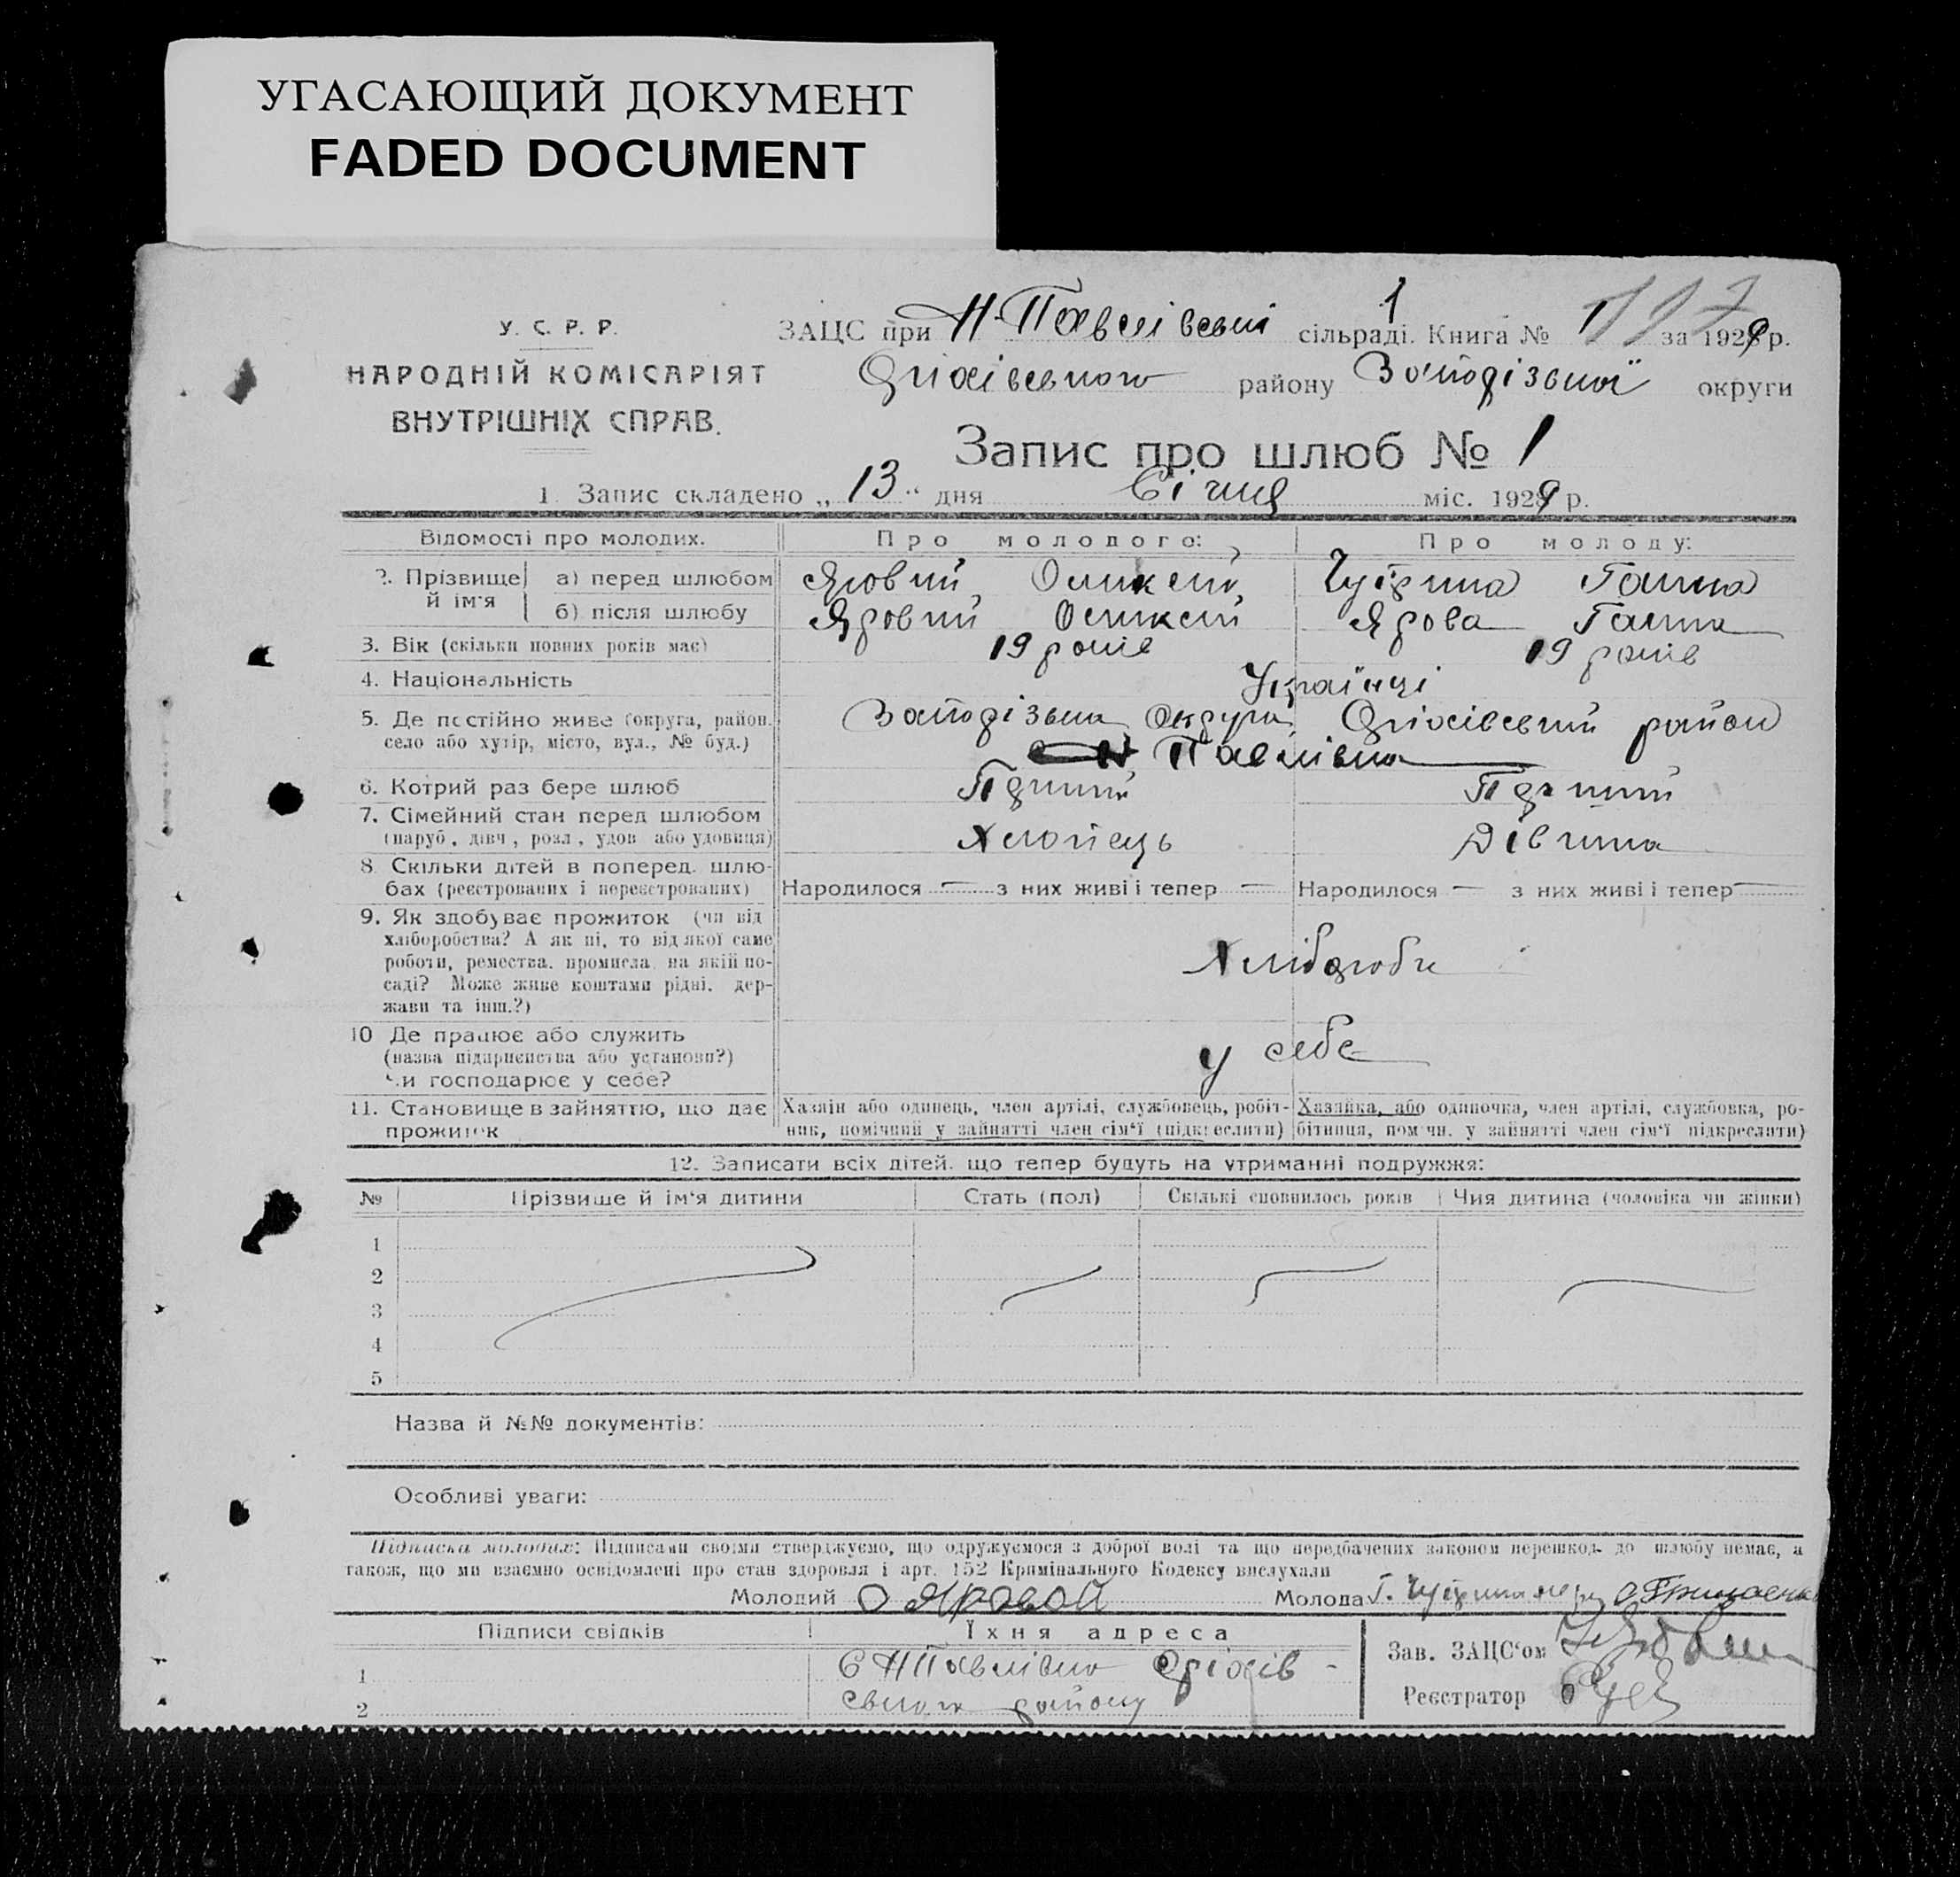 УГАСАЮЩИЙ ДОКУМЕНТ
FADED DOCUMENT
У. С. Р. Р.
НАРОДНІЙ КОМІСАРІЯТ
ВНУТРІШНІХ СПРАВ.
ЗАЦС при Н-Павлівські сільраді. Книга № 1 за 1929 р.
1
197
Оріхівського району Запорізької округи
Запис про шлюб № 1
1. Запис складено „ 13 “ дня Січня міс. 1929 р.
Відомості про молодих.
Про молодого:
Про молоду:
2. Прізвище й ім'я
а) перед шлюбом Яровий Оликсій Ганна
б) після шлюбу Яровий Оликсій Ярова Ганна
3. Вік (скільки повних років має) 19 років 19 років
4. Національність Українці
5. Де постійно живе (округа, район, Запорізька Округа Оріхівський район
село або хутір, місто, вул., № буд.) Н Павлівка
6. Котрий раз бере шлюб Перший Перший
7. Сімейний стан перед шлюбом
(паруб., дівч., розл., удов. або удовиця) Хлопець Дівчина
8. Скільки дітей в поперед. шлю-
бах (реєстрованих і нереєстрованих) Народилося — з них живі і тепер — Народилося — з них живі і тепер —
9. Як здобуває прожиток (чи від
хліборобства? А як ні, то від якої саме
роботи, ремества, промисла, на якій по-
саді? Може живе коштами рідні, дер-
жави та інш.?)
Хлібороби
10 Де працює або служить
(назва підприємства або установи?)
Чи господарює у себе?
у себе
11. Становище в зайняттю, що дає
прожиток
Хазяїн або одинець, член артілі, службовець, робіт-
ник, помічний у зайнятті член сім'ї (підкреслити)
Хазяйка, або одиночка, член артілі, службовка, ро-
бітниця, помічн. у зайнятті член сім'ї підкреслити)
12. Записати всіх дітей, що тепер будуть на утриманні подружжя:
№ Прізвище й ім'я дитини Стать (пол) Скількі сповнилось років Чия дитина (чоловіка чи жінки)
1
2
3
4
5
Назва й №№ документів:
Особливі уваги:
Підписка молодих: Підписами своїми стверджуємо, що одружуємося з доброї волі та що передбачених законом перешкод до шлюбу немає, а
також, що ми взаємно освідомлені про стан здоровля і арт. 152 Кримінального Кодексу вислухали
Молодий О Яровой Молода Г.
Підписи свідків
Їхня адреса
1 С НПавлівка Оріхів-
2 ського району
Зав. ЗАЦС'ом
Реєстратор